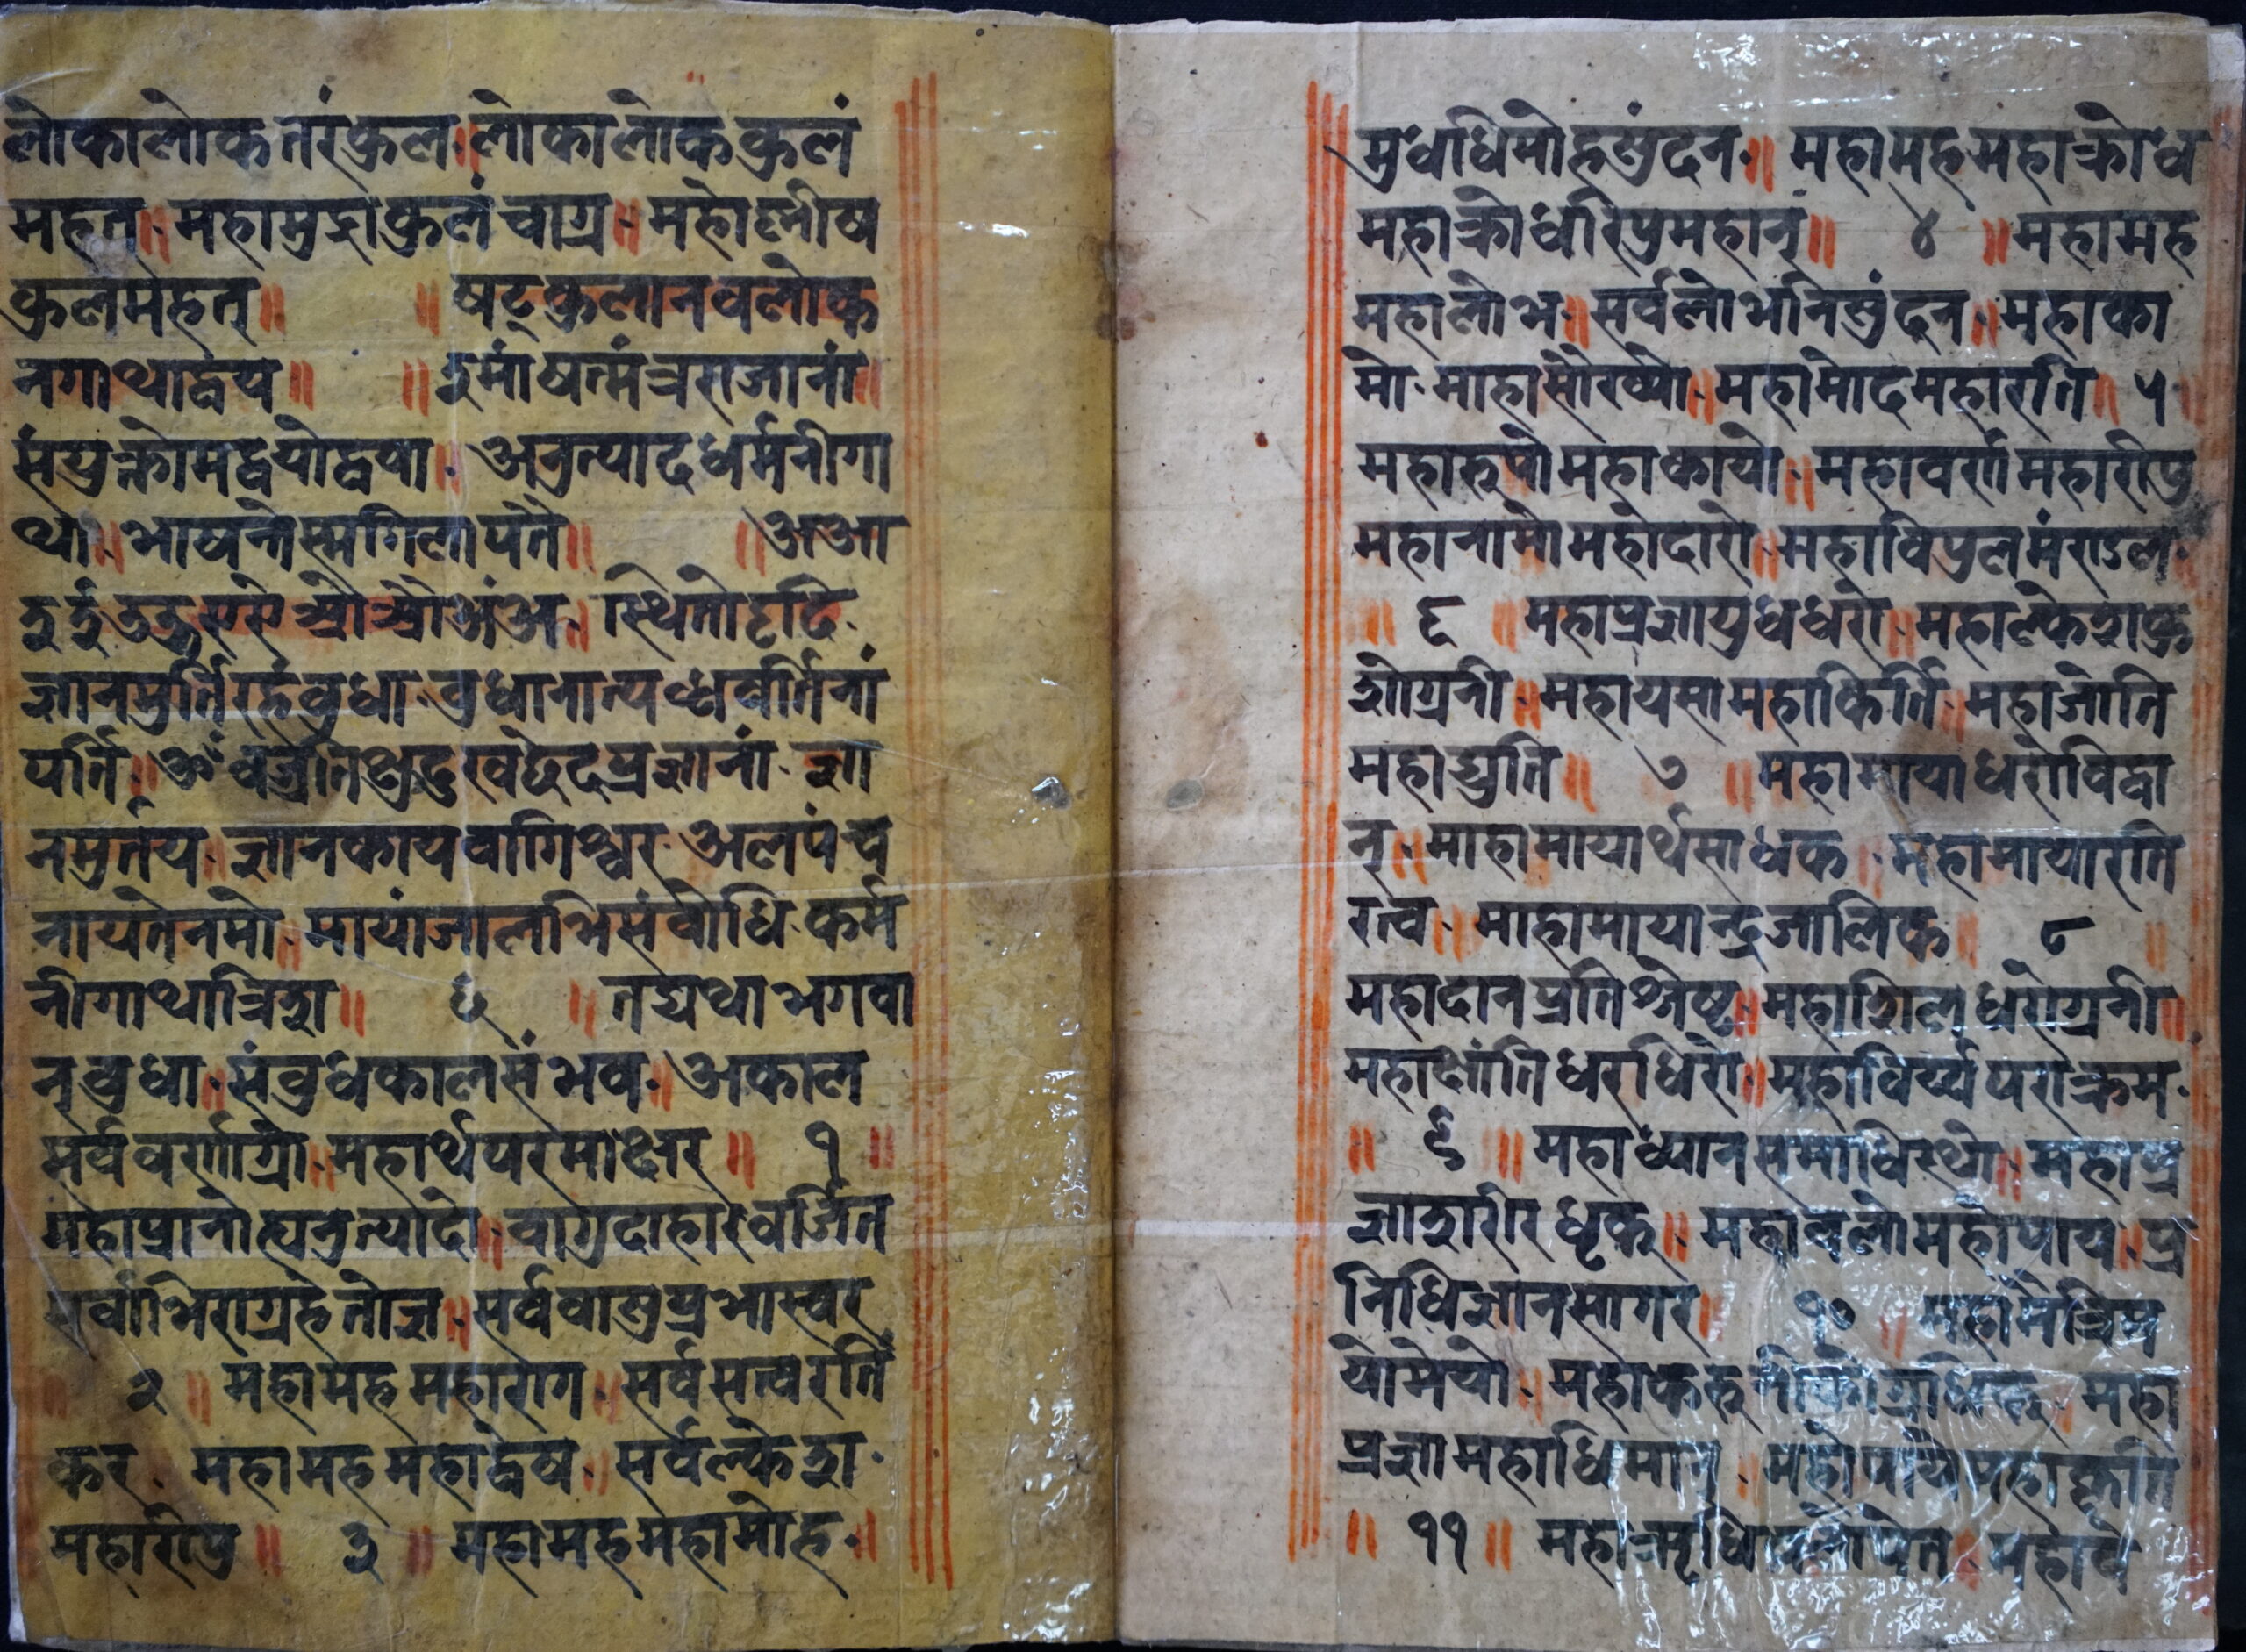 लोकालोकतरंकुल॥लोकालोककुलं
महत्॥महामुद्राकुलंचाग्र॥महोष्णीष
कुलंमहत्॥ ॥षट्कुलानवलोक
नगाथाद्वय॥ ॥इमांषत्मंत्रराजानां॥
संयुक्तोमद्वयोद्वया॥अनुत्पादधर्मनीगा
था॥भाषतेस्मगिलांपते॥ ॥अआ
इईउऊएऐओऔअंअ॥स्थितोहृदि
ज्ञानमुर्तिरहंबुधा॥बुधानात्यध्ववर्तिनां
पर्ति॥ॐवज्रतिक्ष्णदुखछेदप्रज्ञानां॥ज्ञा
नमुर्तय॥ज्ञानकायवागिश्वर॥अलपंच
नायतेनमो॥मायांजालभिसंबोधि॥कर्म
नीगाथात्रिशा॥ ६ ॥तद्यथाभगवा
नबुधा॥संबुधकालसंभव॥अकाल
सर्ववर्णाग्रो॥महार्थपरमाक्षर॥ १ ॥
महाप्रानोत्यनुत्पादो॥वाग्रदाहारवर्जित
सर्वाभिराग्रहेतोज्ञ॥सर्ववासुप्रभास्वर
॥ २ ॥महामहमहाराग॥सर्वसत्वरति
कर॥महामहमहाद्वेष॥सर्वल्केशा
महारीपु॥ ३ ॥महामहमहामोह॥
मुधधिमोहसुंदन॥महामहमहाक्रोध
महाक्रोधरिपुमहान्॥ ४ ॥महामह
महालोभ॥सर्वलोभनिसुंदन॥महाका
मो॥माहासौरव्यो॥महामोदमहारति॥५॥
महारुपोमहाकायो॥महावर्णमहारीपु
महानामोमहोदारो॥महाविपुलमंराडल
॥ ६ ॥महाप्रज्ञायुधधरो॥महाल्केशाकु
शोग्रनी॥महायसामहाकिर्ति॥महाजोति
महाद्युति॥ ७ ॥महामायाधरोविद्वा
न्॥माहामायार्थसाधक॥महामायारति
रत्व॥माहामायान्द्रजालिक॥ ८ ॥
महादानप्रतिश्रेष्ट॥महाशिलधरोग्रनी॥
महाक्षांतिधरधिरो॥महाविर्य्यपराक्रम
॥ ९ ॥महाध्यानसमाधिस्थो॥महाप्र
ज्ञाशरीरधृक्॥महाबलोमहोपाय॥प्र
निधिज्ञानसागर॥ १० ॥महामैत्रिम
योमेयो॥महाकरुनीकोग्रधिरु॥महा
प्रज्ञामहाधिमान्॥महोपायमहाकृति
॥ ११ ॥महाऋधिबलोपेत॥महावे